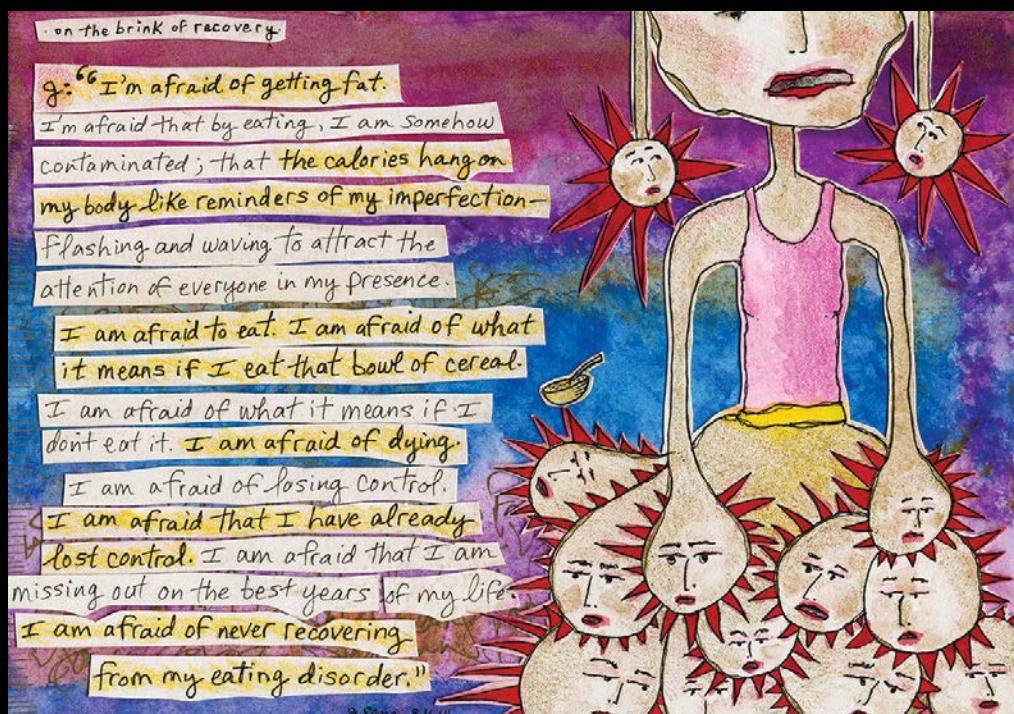 on the brink of recovery.
g: "I'm afraid of getting fat.
I'm afraid that by eating, I am somehow
contaminated; that the calories hang on
my body like reminders of my imperfection—
flashing and waving to attract the
attention of everyone in my presence.
I am afraid to eat. I am afraid of what
it means if I eat that bowl of cereal.
I am afraid of what it means if I
don't eat it. I am afraid of dying.
I am afraid of losing control.
I am afraid that I have already
lost control. I am afraid that I am
missing out on the best years of my life.
I am afraid of never recovering
from my eating disorder."